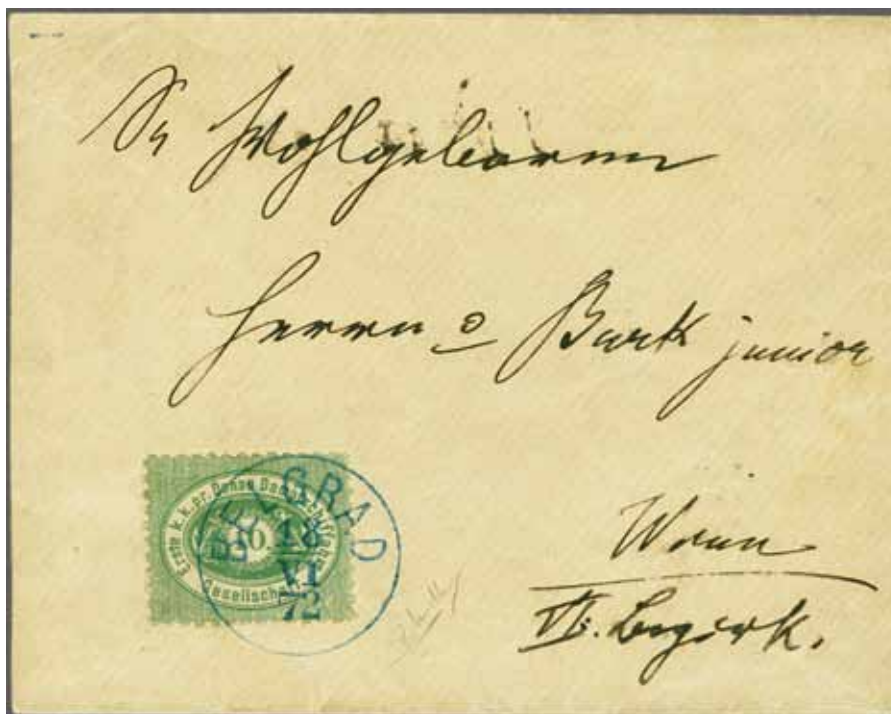 Sr Wohlgeboren
Herrn Burk junior
Wien
VI. Bezirk.
Erste k. k. pr. Donau Dampfschiffahrt
Gesellschaft
10
BELGRAD
18
VI
72